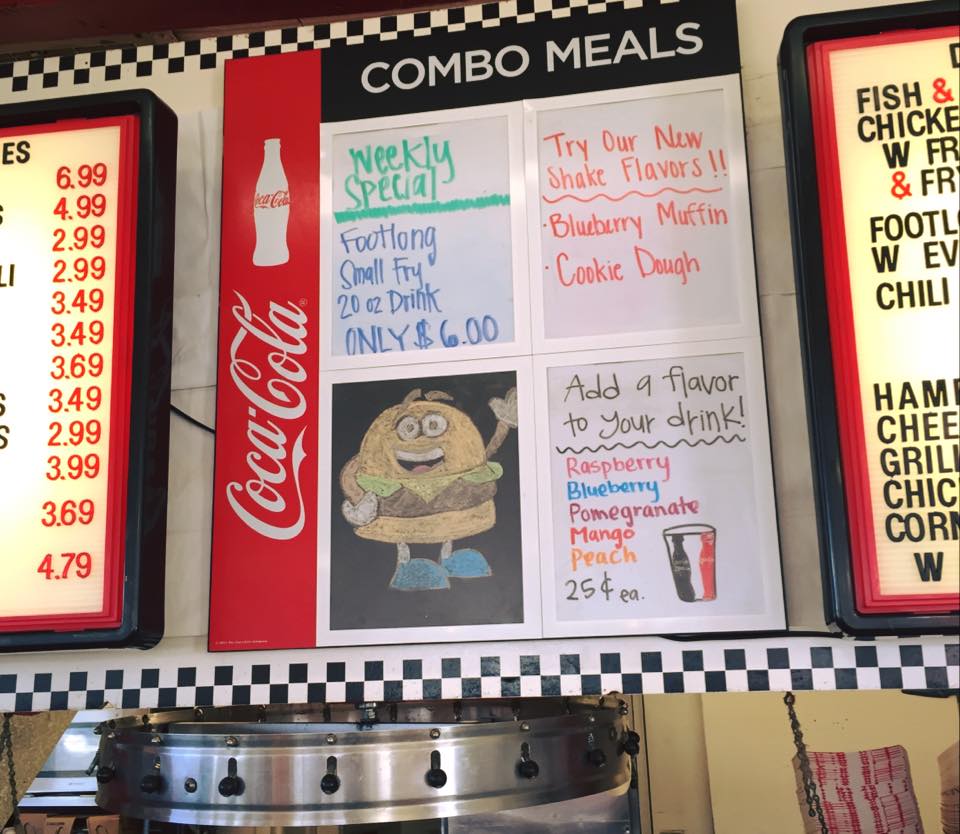 COMBO MEALS
ES
6.99
4.99
2.99
LI 2.99
3.49
3.49
3.69
S 3.49
S 2.99
3.99
3.69
4.79
Coca-Cola
Coca-Cola®
Weekly
Special
Footlong
Small Fry
20 oz Drink
ONLY $6.00
Try Our New
Shake Flavors!!
·Blueberry Muffin
·Cookie Dough
Add a flavor
to your drink!
Raspberry
Blueberry
Pomegranate
Mango
Peach
25¢ ea.
D
FISH &
CHICKE
W FR
& FRY
FOOTLO
W EV
CHILI
HAMB
CHEE
GRILL
CHIC
CORN
W